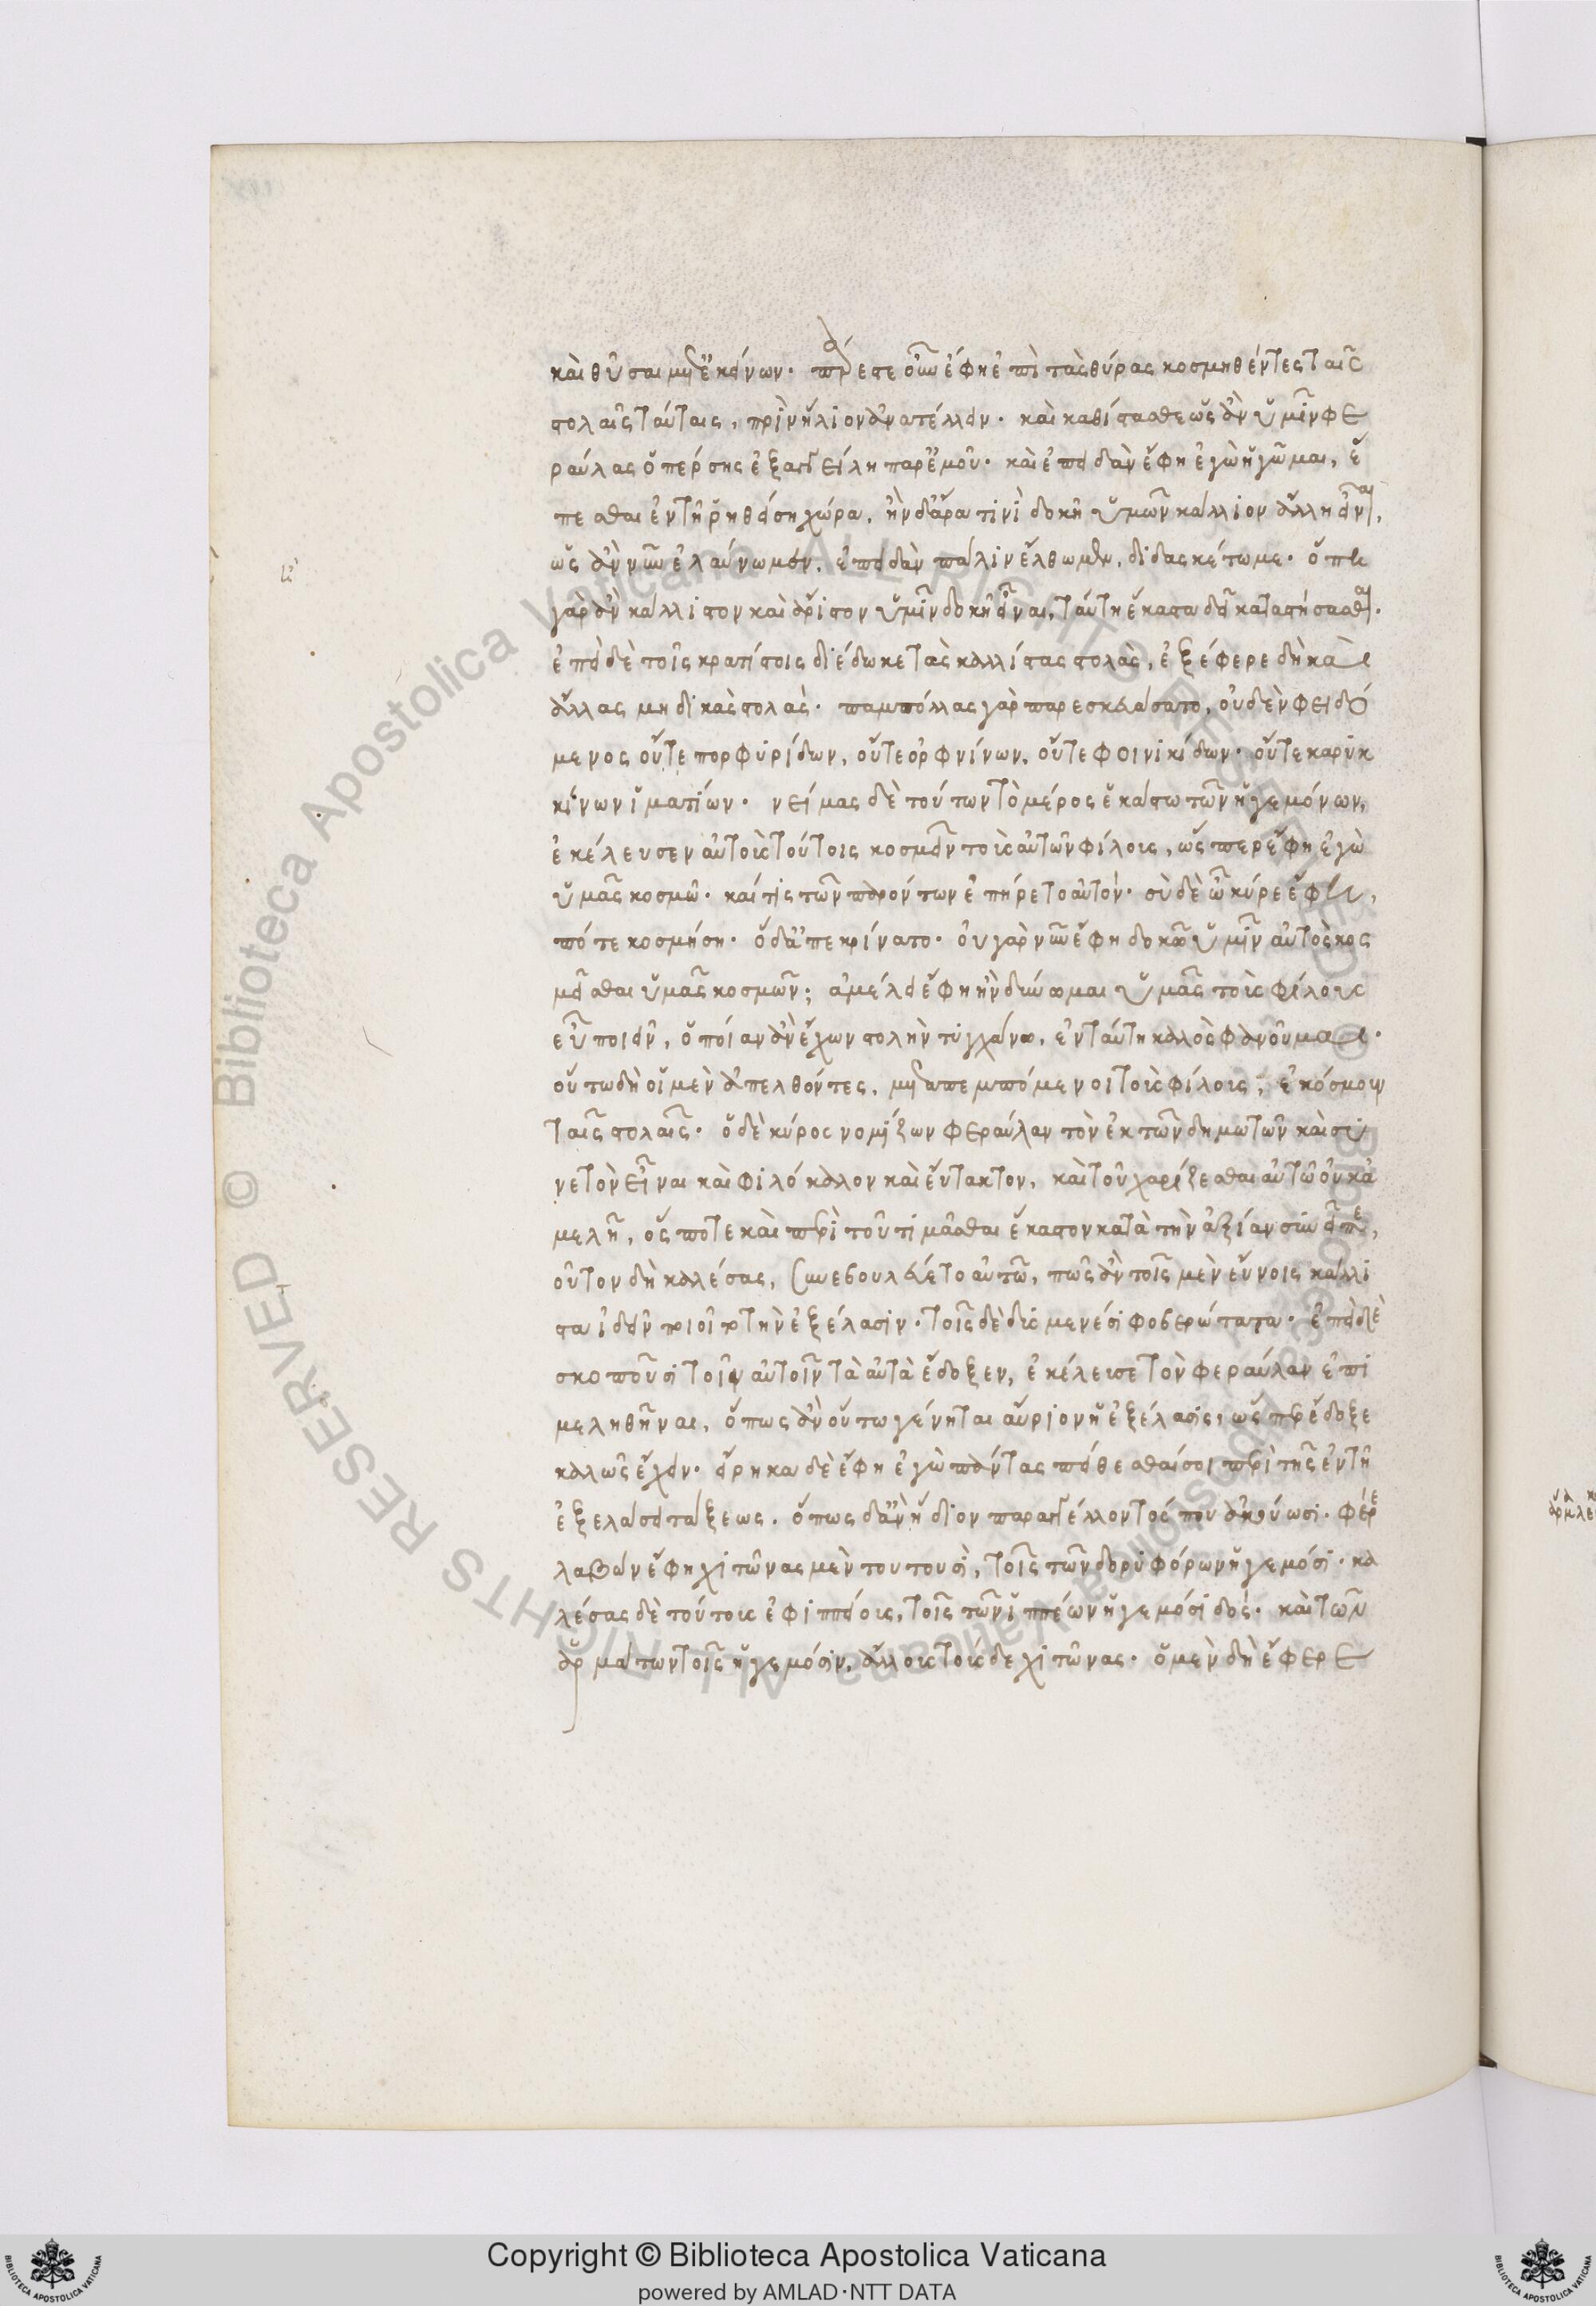 καὶ θῦσαι μετ' ἐκείνων. πάρεστε οὖν ἔφη ἐπὶ τὰς θύρας κοσμηθέντες ταῖς
στολαῖς ταύταις, πρὶν ἥλιον ἀνατέλλειν. καὶ καθίστασθε ὡς ἂν ὑμῖν φε
ραύλας ὁ πέρσης ἐξαγγείλη παρ' ἐμοῦ. καὶ ἐπειδὰν ἔφη ἐγὼ ἡγῶμαι, ἕ
πεσθαι ἐν τῆ ῥηθείση χώρα. ἢν δ' ἄρα τινὶ δοκῆ ὑμῶν κάλλιον ἄλλη εἶναι,
ὡς ἂν νῦν ἐλαύνωμεν, ἐπειδὰν πάλιν ἔλθωμεν, διδασκέτω με. ὅπη
γὰρ ἂν κάλλιστον καὶ ἄριστον ὑμῖν δοκῆ εἶναι, ταύτη ἕκαστα δεῖ καταστήσασθαι.
ἐπεὶ δὲ τοῖς κρατίστοις διέδωκε τὰς καλλίστας στολὰς, ἐξέφερε δὴ καὶ
ἄλλας μηδικὰς στολὰς. παμπόλλας γὰρ παρεσκευάσατο, οὐδὲν φειδό
μενος οὔτε πορφυρίδων, οὔτε ὀρφνίνων, οὔτε φοινικίδων. οὔτε καρυκ
κίνων ἱματίων. νείμας δὲ τούτων τὸ μέρος ἑκάστω τῶν ἡγεμόνων,
ἐκέλευσεν αὐτοὺς τούτοις κοσμεῖν τοὺς αὐτῶν φίλους, ὥσπερ ἔφη ἐγὼ
ὑμᾶς κοσμῶ. καί τις τῶν παρόντων ἐπήρετο αὐτόν. σὺ δὲ ὦ κύρε ἔφη,
πότε κοσμήση. ὁ δ' ἀπεκρίνατο. οὐ γὰρ νῦν ἔφη δοκῶ ὑμῖν αὐτὸς κοσ
μεῖσθαι ὑμᾶς κοσμῶν; ἀμέλει ἔφη ἢν δύνωμαι ὑμᾶς τοὺς φίλους
εὖ ποιεῖν, ὁποίαν ἂν ἔχων στολὴν τυγχάνω, ἐν ταύτη καλὸς φανοῦμαι.
οὕτω δὴ οἱ μὲν ἀπελθόντες, μεταπεμπόμενοι τοὺς φίλους, ἐκόσμουν
ταῖς στολαῖς. ὁ δὲ κύρος νομίζων φεραύλαν τὸν ἐκ τῶν δημωτῶν καὶ συ
νετὸν εἶναι καὶ φιλόκαλον καὶ εὔτακτον, καὶ τοῦ χαρίζεσθαι αὐτῶ οὐκ ἀ
μελῆ, ὅς ποτε καὶ περὶ τοῦ τιμᾶσθαι ἕκαστον κατὰ τὴν ἀξίαν συνεῖπε,
οὗτον δὴ καλέσας, συνεβουλεύετο αὐτῶ, πῶς ἂν τοῖς μὲν εὔνοις κάλλι
στα ἰδεῖν ποιοῖτο τὴν ἐξέλασιν. τοῖς δὲ δυσμενέσι φοβερώτατα. ἐπεὶ δὲ
σκοποῦσι τοῖν αὐτοῖν τὰ αὐτὰ ἔδοξεν, ἐκέλευσε τὸν φεραύλαν ἐπι
μεληθῆναι, ὅπως ἂν οὕτω γένηται αὔριον ἡ ἐξέλασις, ὥσπερ ἔδοξε
καλῶς ἔχειν. εἴρηκα δὲ ἔφη ἐγὼ πάντας πείθεσθαί σοι περὶ τῆς ἐν τῆ
ἐξελάσει τάξεως. ὅπως δ' ἂν ἥδιον παραγγέλλοντός του ἀκούωσι. φέρε
λαβὼν ἔφη χιτῶνας μὲν τουτουσὶ, τοῖς τῶν δορυφόρων ἡγεμόσι. κα
λέσας δὲ τούτους ἐφιππείους, τοῖς τῶν ἱππέων ἡγεμόσι δός. καὶ τῶν
ἁρμάτων τοῖς ἡγεμόσιν, ἄλλους τούσδε χιτῶνας. ὁ μὲν δὴ ἔφερε
Copyright © Biblioteca Apostolica Vaticana
powered by AMLAD·NTT DATA